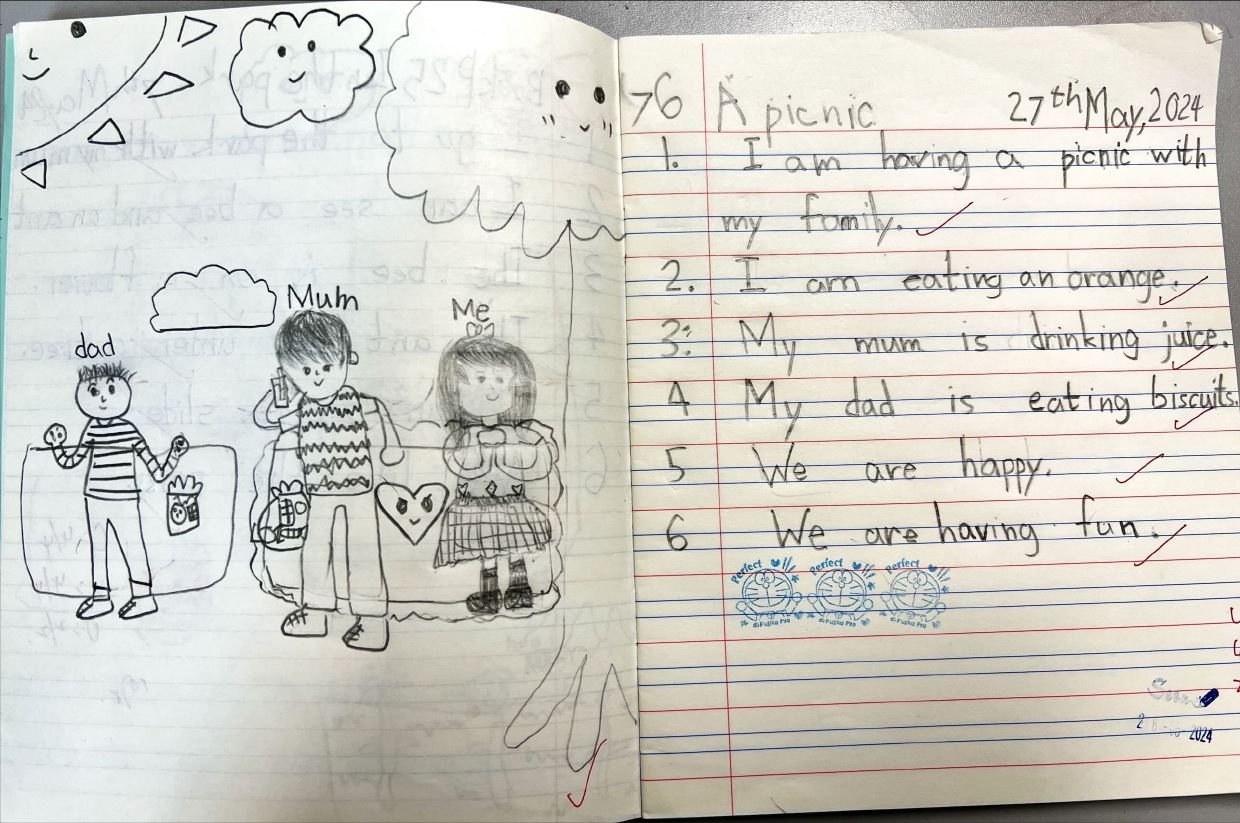 dad
Mum
Me
76 A picnic 27th May, 2024
1. I am having a picnic with
my family.
2. I am eating an orange.
3. My mum is drinking juice.
4 My dad is eating biscuits.
5 We are happy.
6 We are having fun.
Perfect Perfect Perfect
© Fujiko Pro © Fujiko Pro © Fujiko Pro
2024